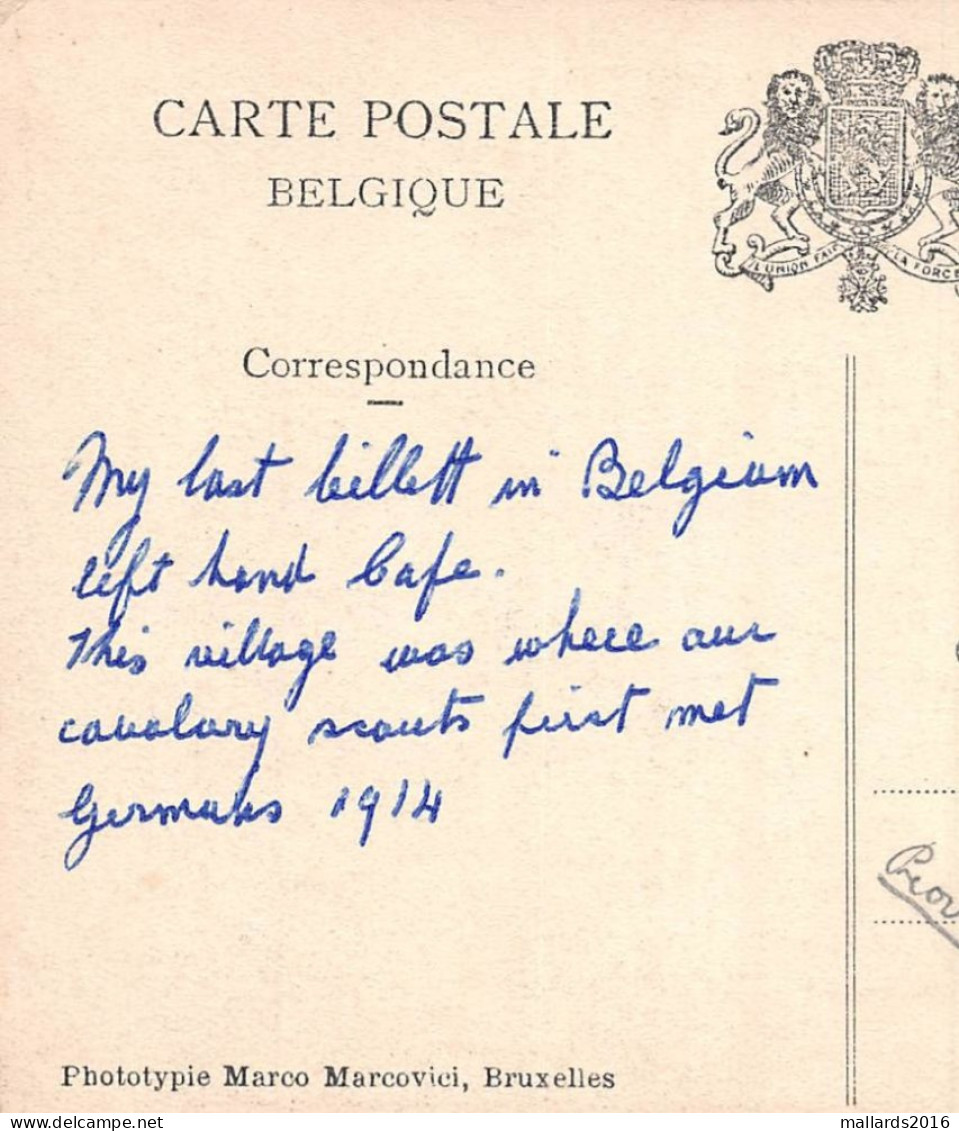 CARTE POSTALE
BELGIQUE
L'UNION FAIT LA FORCE
Correspondance
My last billett in Belgium
left hand Cafe.
This village was where our
cavalary scouts first met
Germans 1914
Phototypie Marco Marcovici, Bruxelles
mallards2016